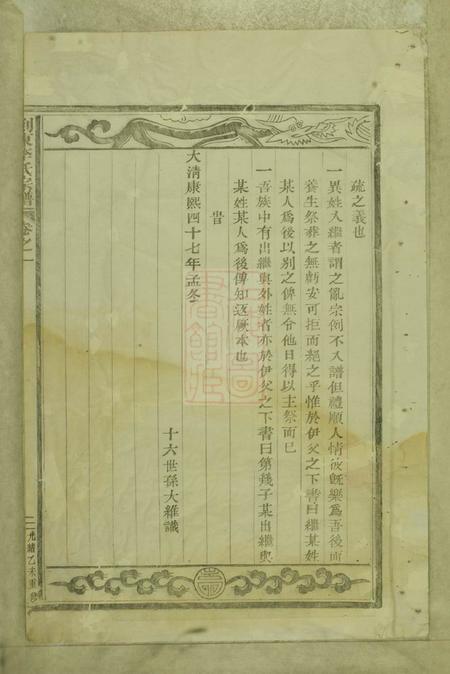 疏之義也
一異姓入繼者謂之亂宗例不入譜但禮順人情彼既樂爲吾後而
養生祭葬之無虧安可拒而絕之乎惟於伊父之下書曰繼某姓
某人爲後以別之俾無令他日得以主祭而已
一吾族中有出繼與外姓者亦於伊父之下書曰第幾子某出繼與
某姓某人爲後俾知返厥本也
旹
大清康熙四十七年孟冬
十六世孫大維識
東李氏宗譜
卷之一
光緒乙未重